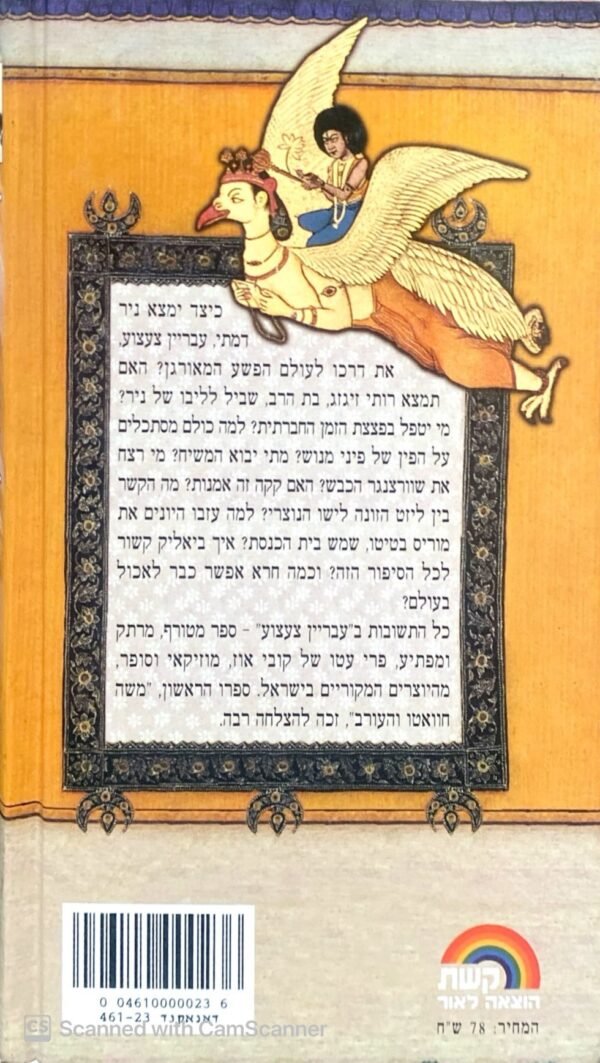 כיצד ימצא ניר
דמתי, עבריין צעצוע,
את דרכו לעולם הפשע המאורגן? האם
תמצא רותי זיגזג, בת הרב, שביל לליבו של ניר?
מי יטפל בפצצת הזמן החברתית? למה כולם מסתכלים
על הפין של פיני מנוש? מתי יבוא המשיח? מי רצח
את שוורצנגר הכבש? האם קקה זה אמנות? מה הקשר
בין ליזט הזונה לישו הנוצרי? למה עזבו היונים את
מוריס בטיטו, שמש בית הכנסת? איך ביאליק קשור
לכל הסיפור הזה? וכמה חרא אפשר כבר לאכול
בעולם?
כל התשובות ב"עבריין צעצוע" - ספר מטורף, מרתק
ומפתיע, פרי עטו של קובי אוז, מוזיקאי וסופר,
מהיוצרים המקוריים בישראל. ספרו הראשון, "משה
חוואטו והעורב", זכה להצלחה רבה.
0 04610000023 6
דאנאקוד 461-23
קשת
הוצאה לאור
המחיר: 78 ש"ח
CS Scanned with CamScanner